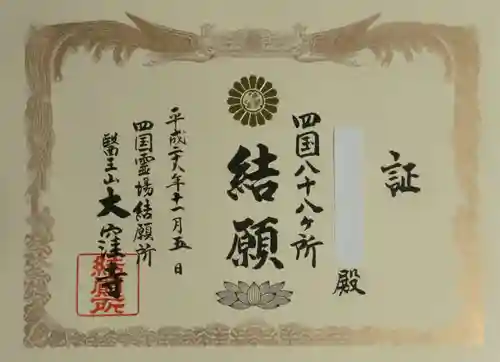 証
殿
四国八十八ヶ所
結願
平成二十八年十一月五日
四国霊場結願所
醫王山大窪寺
結願所